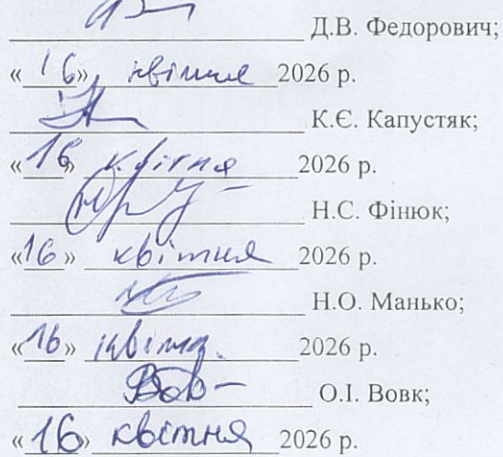 Д.В. Федорович;
«16» квітня 2026 р.
К.Є. Капустяк;
«16» квітня 2026 р.
Н.С. Фінюк;
«16» квітня 2026 р.
Н.О. Манько;
«16» квітня 2026 р.
О.І. Вовк;
«16» квітня 2026 р.